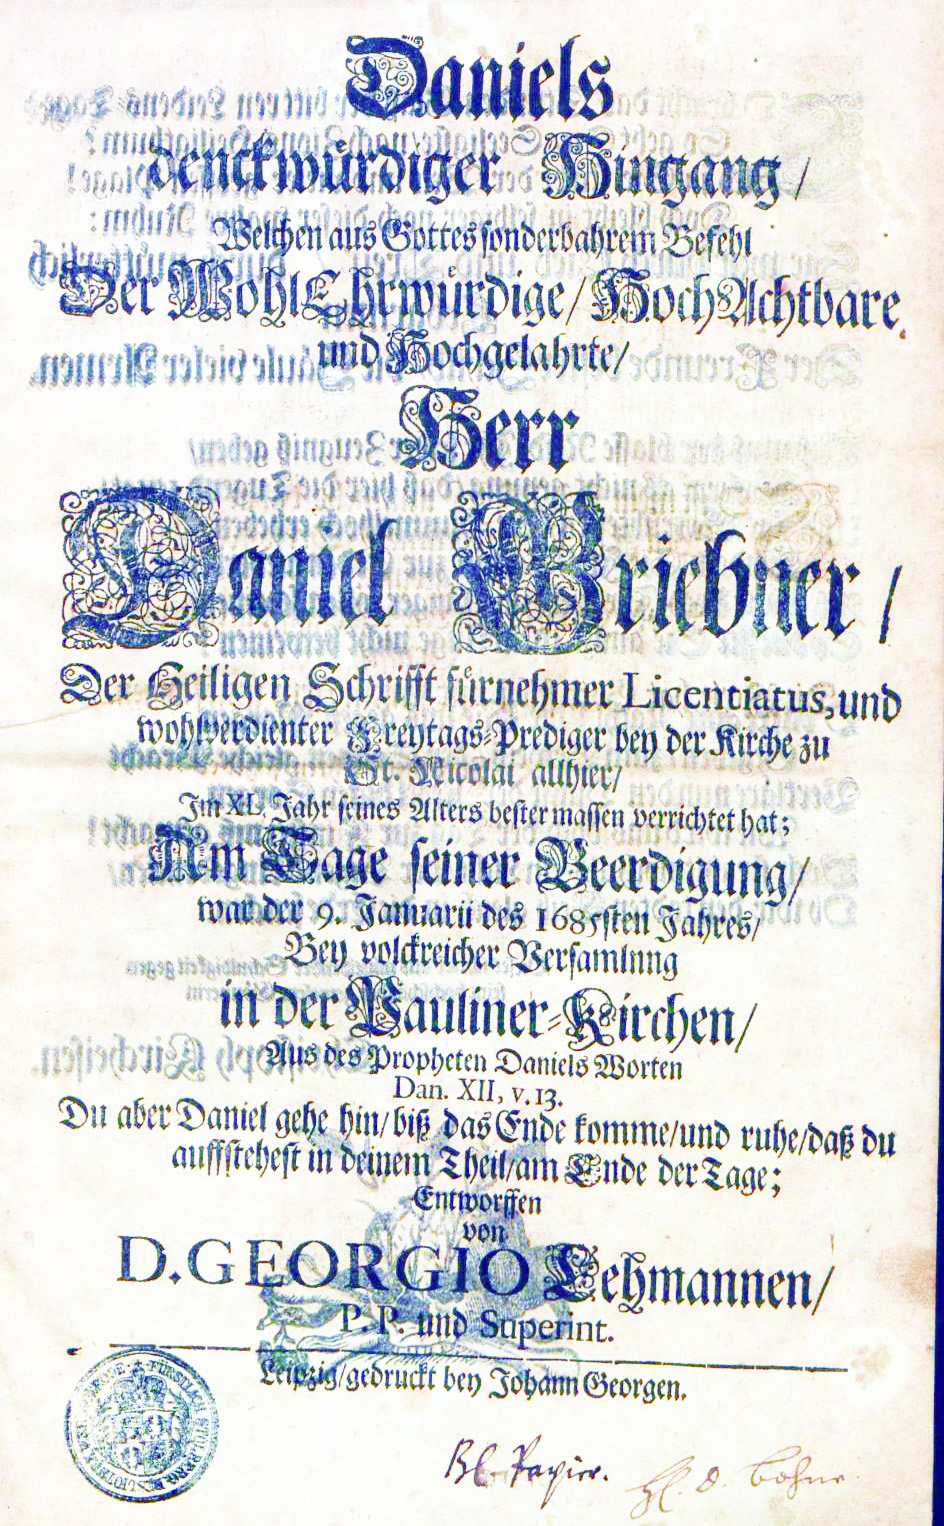 Daniels
denckwürdiger Hingang /
Welchen aus Gottes sonderbahrem Befehl
Der WohlEhrwürdige / HochAchtbare
und Hochgelahrte /
Herr
Daniel Griebner /
Der Heiligen Schrifft fürnehmer Licentiatus, und
wohlverdienter Freytags-Prediger bey der Kirche zu
St. Nicolai allhier /
Im XL. Jahr seines Alters bester massen verrichtet hat;
Am Tage seiner Beerdigung /
war der 9. Januarii des 1685sten Jahres /
Bey volckreicher Versamlung
in der Pauliner-Kirchen /
Aus des Propheten Daniels Worten
Dan. XII, v. 13.
Du aber Daniel gehe hin / biß das Ende komme / und ruhe / daß du
auffstehest in deinem Theil / am Ende der Tage;
Entworffen
von
D. GEORGIO Lehmannen /
P. P. und Superint.
Leipzig / gedruckt bey Johann Georgen.